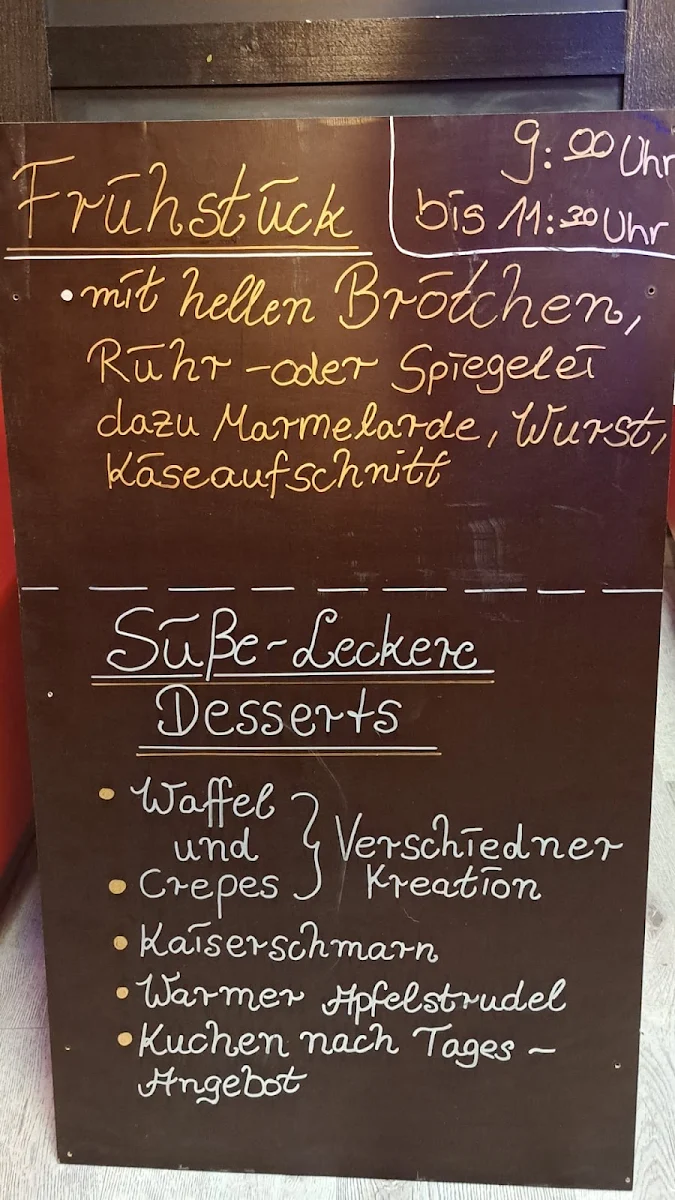 Frühstück
9:00 Uhr
bis 11:30 Uhr
• mit hellen Brötchen,
Rühr - oder Spiegelei
dazu Marmelarde, Wurst,
Käseaufschnitt
Süße-Leckere
Desserts
• Waffel
und
• Crepes
} Verschiedner
Kreation
• Kaiserschmarn
• Warmer Apfelstrudel
• Kuchen nach Tages -
Angebot